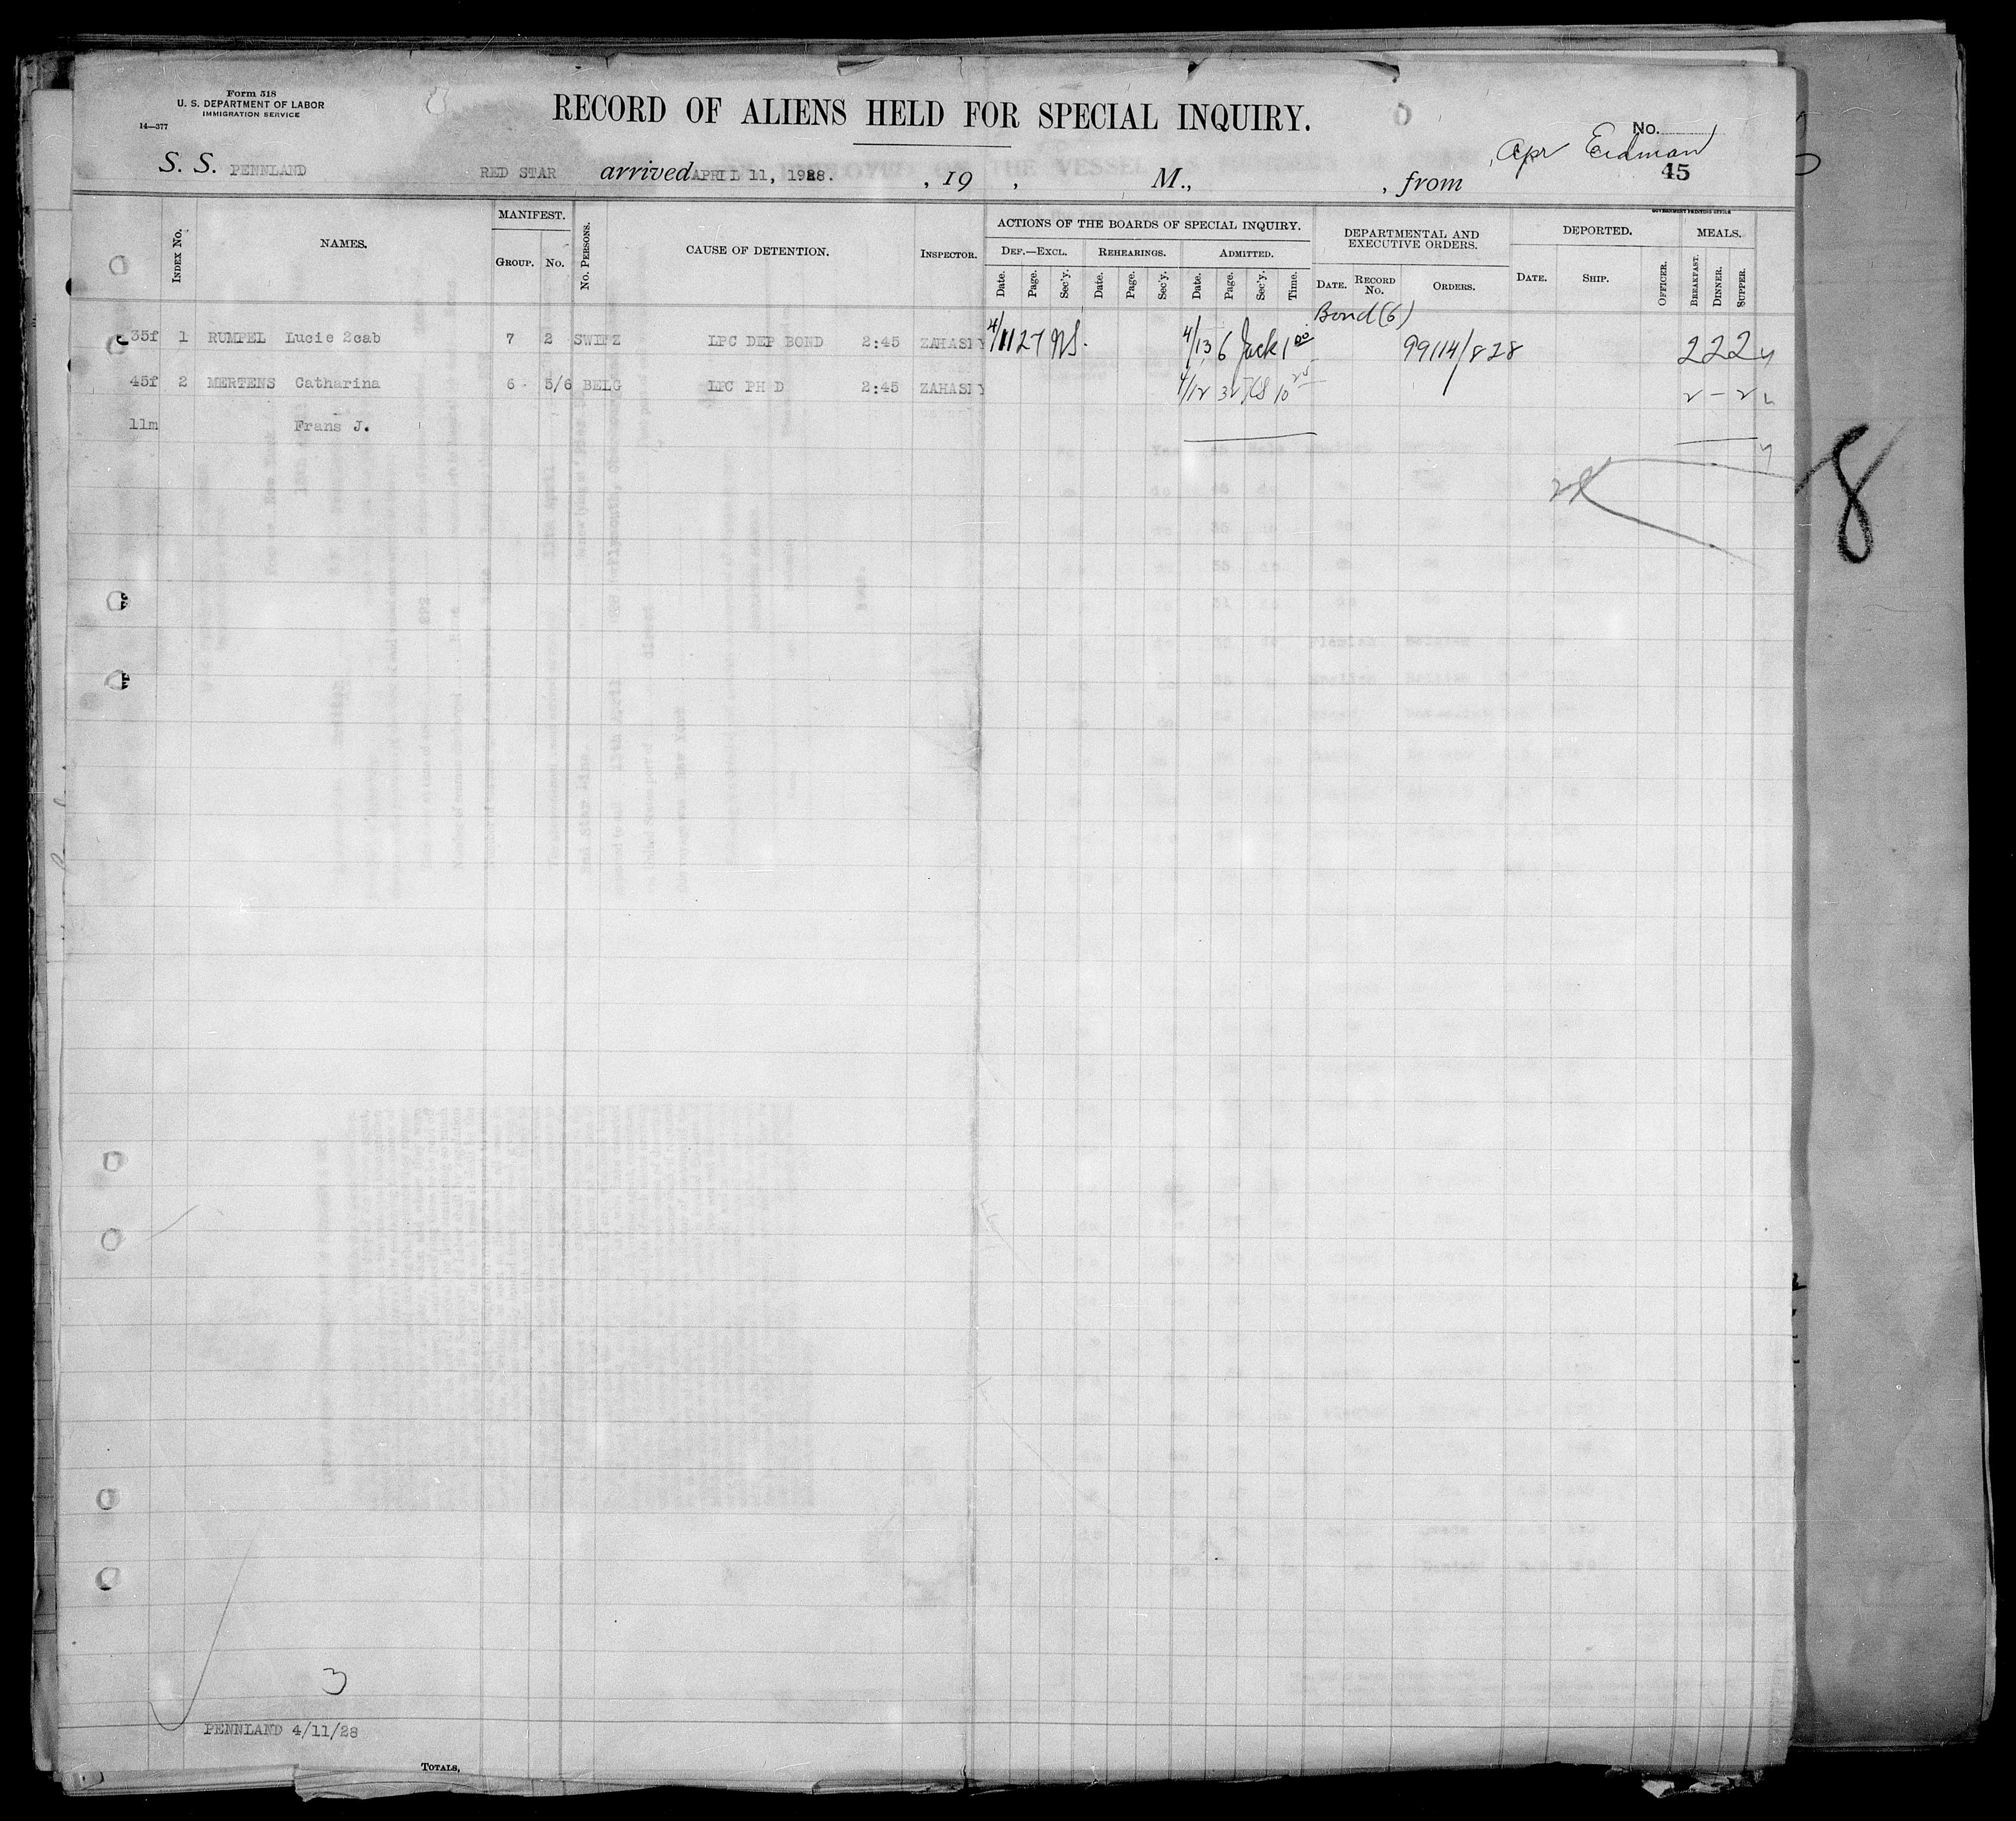 Form 518
U. S. DEPARTMENT OF LABOR
IMMIGRATION SERVICE
14—377
RECORD OF ALIENS HELD FOR SPECIAL INQUIRY.
No.
Apr Erdman
45
S. S. PENNLAND RED STAR arrived APRIL 11, 1928. , 19 , M., , from
GOVERNMENT PRINTING OFFICE
INDEX No. NAMES. MANIFEST. GROUP. No. No. PERSONS. CAUSE OF DETENTION. INSPECTOR. ACTIONS OF THE BOARDS OF SPECIAL INQUIRY. DEF.—EXCL. Date. Page. Sec'y. REHEARINGS. Date. Page. Sec'y. ADMITTED. Date. Page. Sec'y. Time. DEPARTMENTAL AND EXECUTIVE ORDERS. DATE. RECORD No. ORDERS. DEPORTED. DATE. SHIP. OFFICER. MEALS. BREAKFAST. DINNER. SUPPER.
Bond (6)
35f 1 RUMPEL Lucie 2cab 7 2 SWITZ LPC DEP BOND 2:45 ZAHASKY 4/11 27 NS. 4/13 6 Jack 1 00 99114/828 2 2 2 y
45f 2 MERTENS Catharina 6 5/6 BELG LPC PH D 2:45 ZAHASKY 4/12 32 10 2 - 2
11m Frans J.
8
3
PENNLAND 4/11/28
TOTALS,